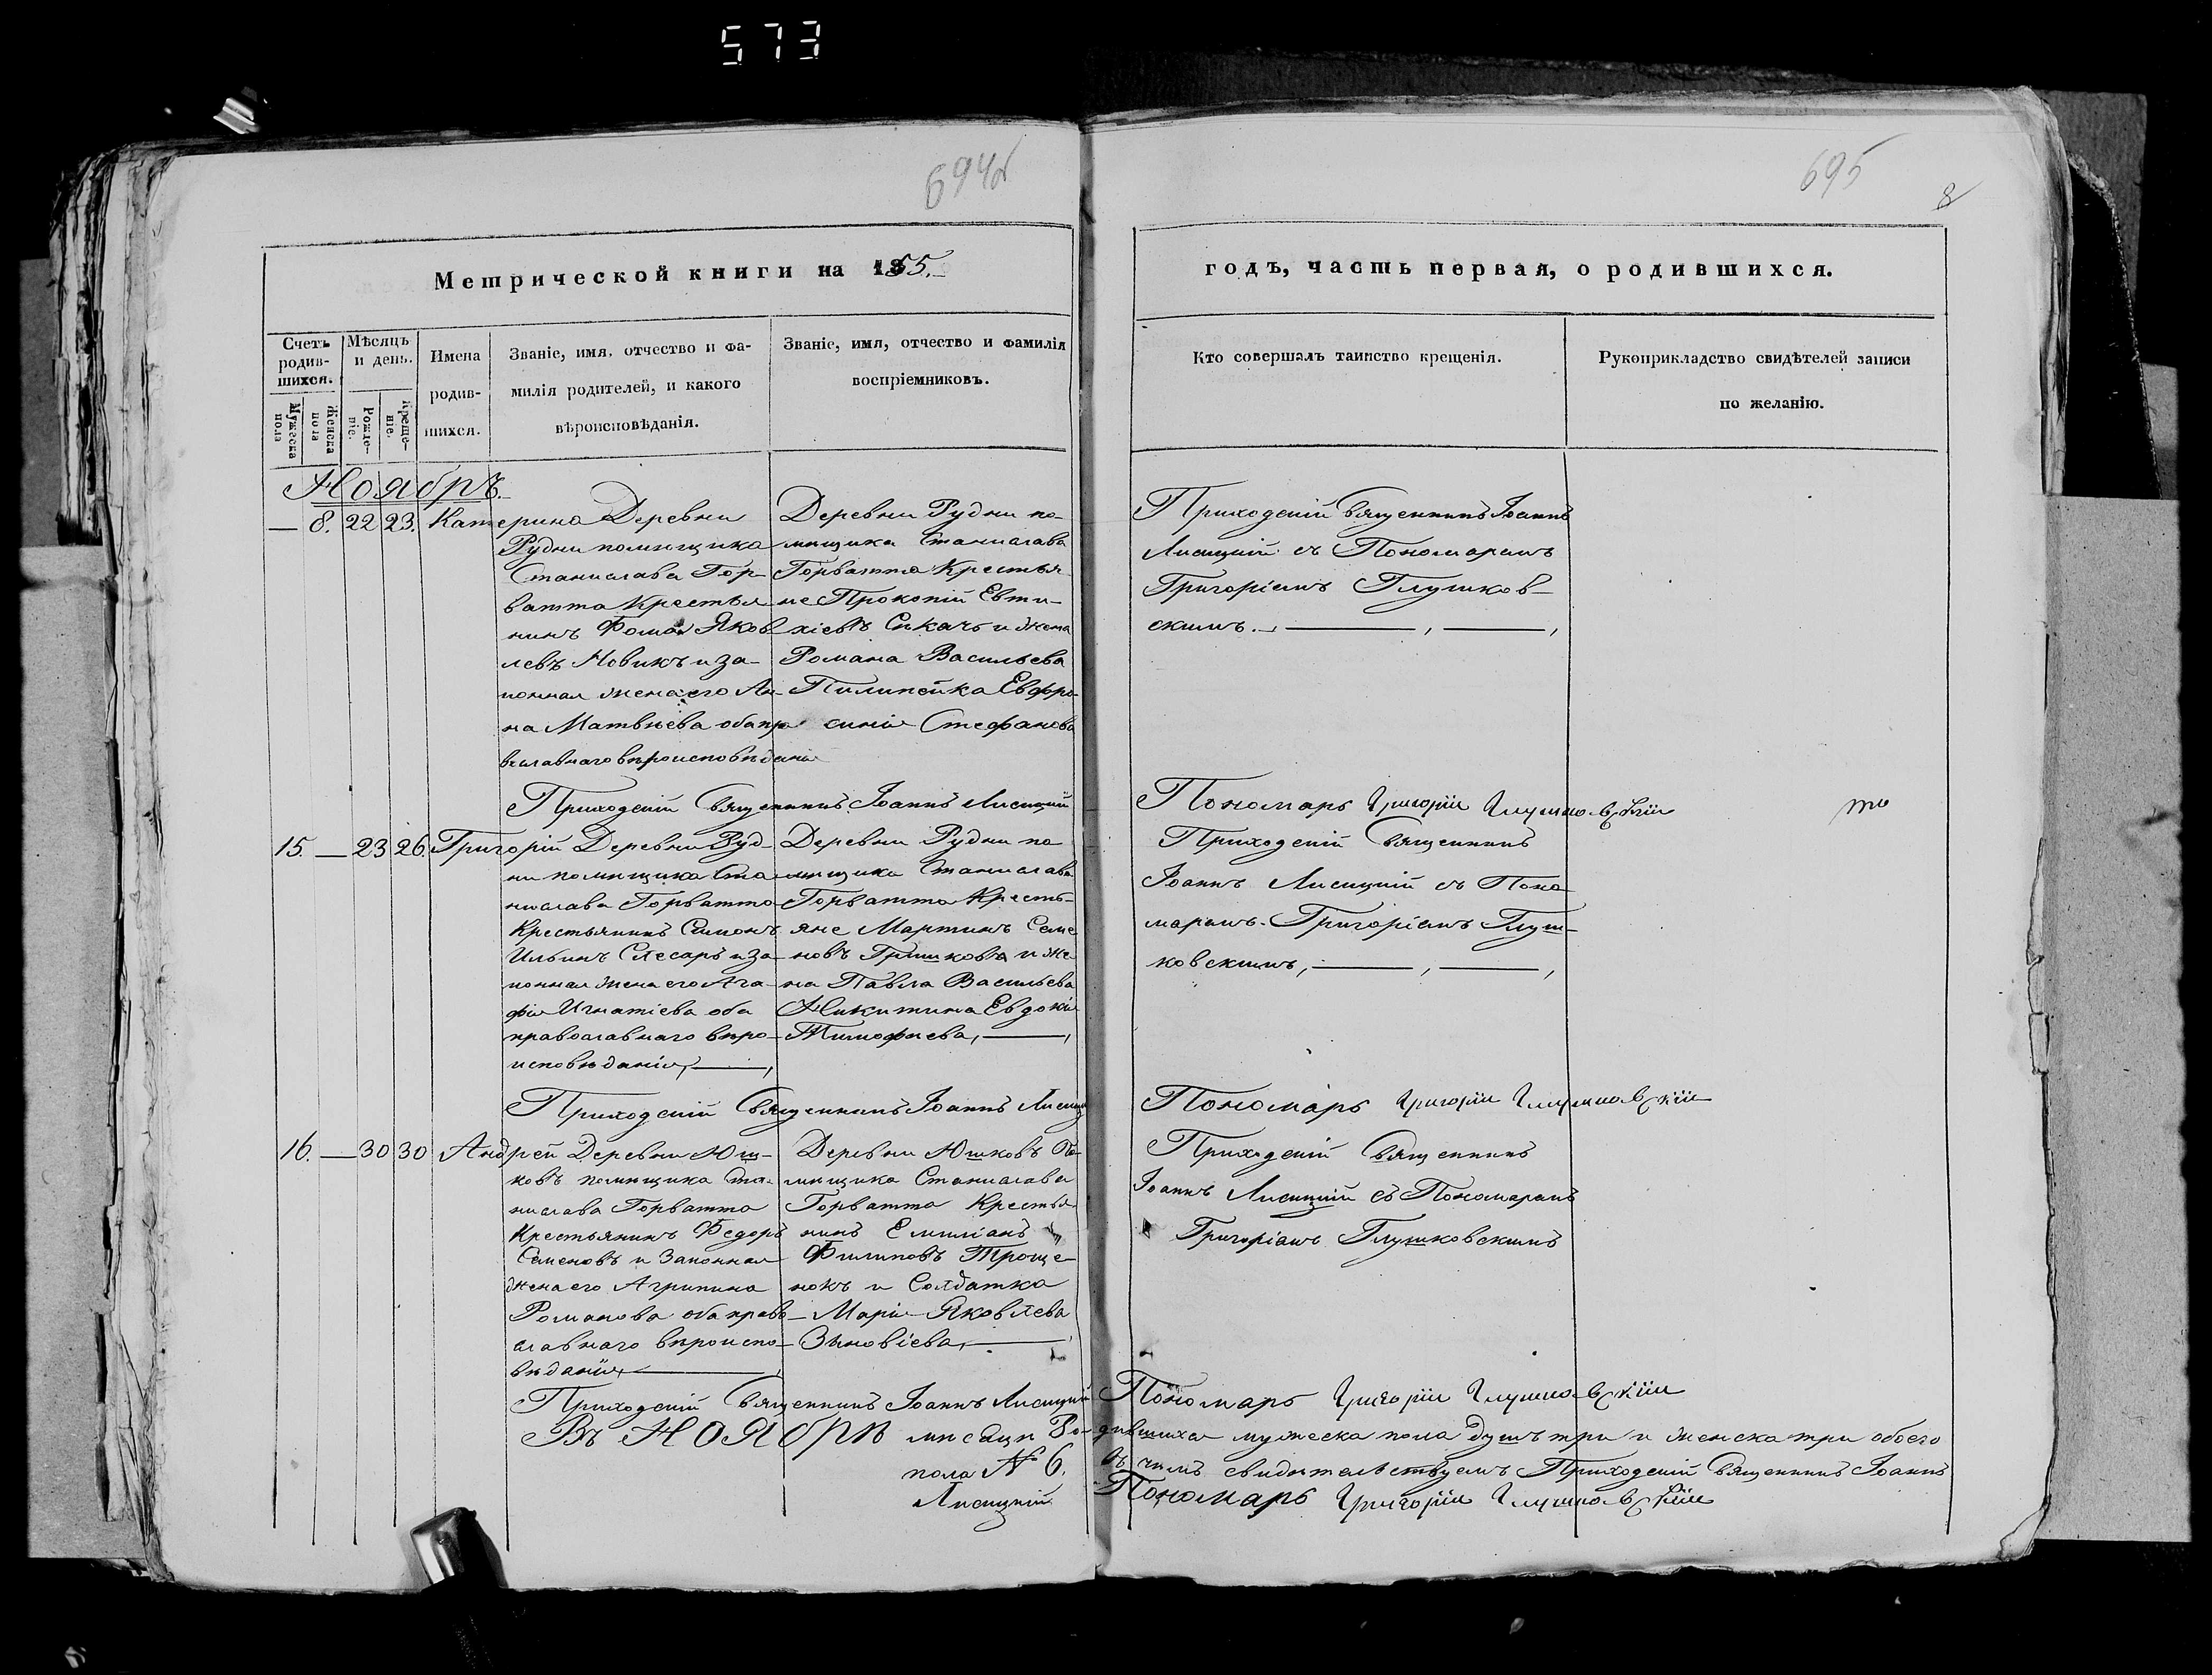 573
694об
695
8
Метрической книги на 1855.
годъ, часть первая, о родившихся.
Счетъ родившихся.
Мужеска пола
Женска пола
Мѣсяцъ и день.
Рожденіе.
Крещеніе.
Имена родившихся.
Званіе, имя, отчество и фамилія родителей, и какого вѣроисповѣданія.
Званіе, имя, отчество и фамилія воспріемниковъ.
Кто совершалъ таинство крещенія.
Рукоприкладство свидѣтелей записи по желанію.
Ноябрь.
— 8. 22 23. Катерина
Деревни
Рудни помѣщика
Станислава Гор-
ватта Крестья
нинъ Фома Яков
левъ Новикъ и за-
конная жена его Ан-
на Матвѣева оба пра
вославнаго вѣроисповѣданія
Деревни Рудни по-
мѣщика Станислава
Горватта Крестья
не Прокопій Евти-
хіевъ Сикачъ и жена
Романа Васильева
Пилипейка Евфро-
синія Стефанова
Приходскій Священникъ Іоаннъ
Лисицкій съ Пономаремъ
Григоріемъ Глушков-
скимъ. —, —,
Приходскій Священникъ Іоаннъ Лисицкій
Пономарь Григорій Глушковскій
15. — 23 26. Григорій
Деревни Руд-
ни помѣщика Ста
нислава Горватта
Крестьянинъ Симонъ
Ильинъ Слесарь и за-
конная жена его Ага-
фія Игнатіева оба
православнаго вѣро-
исповѣданія, —,
Деревни Рудни по
мѣщика Станислава
Горватта Кресть-
яне Мартинъ Семе
новъ Гришковъ и же
на Павла Васильева
Никитина Евдокія
Тимофѣева, —,
Приходскій Священникъ
Іоаннъ Лисицкій съ Поно
маремъ Григоріемъ Глуш-
ковскимъ, —, —,
Приходскій Священникъ Іоаннъ Лисицк
Пономарь Григорій Глушковскій
16. — 30 30 Андрей
Деревни Юш-
ковъ помѣщика Ста-
нислава Горватта
Крестьянинъ Федоръ
Семеновъ и Законная
жена его Агрипина
Романова оба право
славнаго вѣроиспо-
вѣданія, —,
Деревни Юшковъ По-
мѣщика Станислава
Горватта Крестья
нинъ Емиліанъ
Филиповъ Троще-
нокъ и Солдатка
Марія Яковлева
Зиновіева, —,
Приходскій Священникъ
Іоаннъ Лисицкій съ Пономаремъ
Григоріемъ Глушковскимъ
Приходскій Священникъ Іоаннъ Лисицкій
Пономарь Григорій Глушковскій
Въ НОЯбрѣ мѣсяцѣ Родившихся мужеска пола душъ три и женска три обоего
пола № 6. въ чемъ свидѣтельствуемъ Приходскій Священникъ Іоаннъ
Лисицкій
Пономарь Григорій Глушковскій